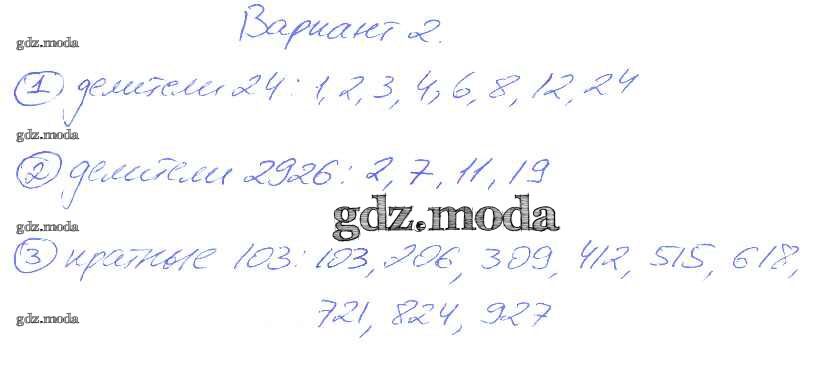 Вариант 2.
gdz.moda
1 делители 24: 1, 2, 3, 4, 6, 8, 12, 24
gdz.moda
2 делители 2926: 2, 7, 11, 19
gdz.moda
gdz.moda
3 кратные 103: 103, 206, 309, 412, 515, 618,
721, 824, 927
gdz.moda